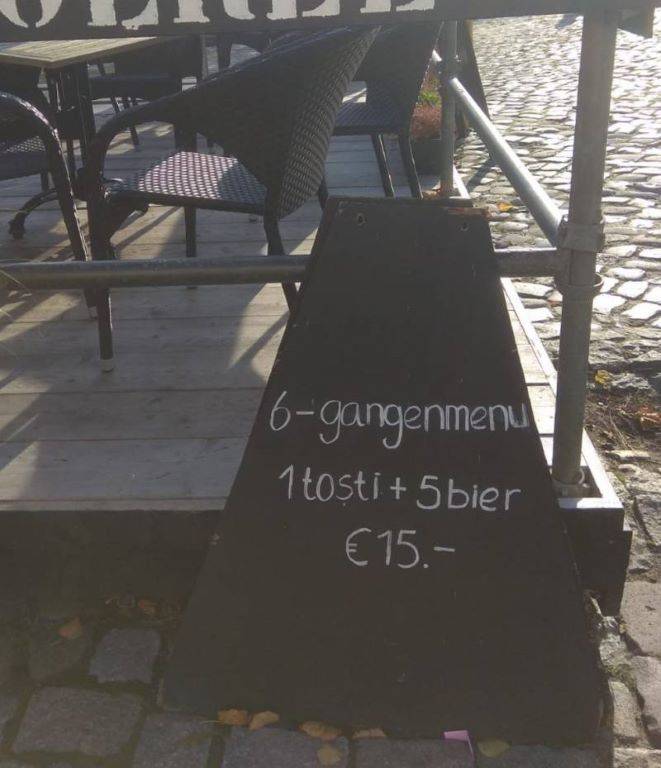 6-gangenmenu
1 tosti + 5 bier
€15.-